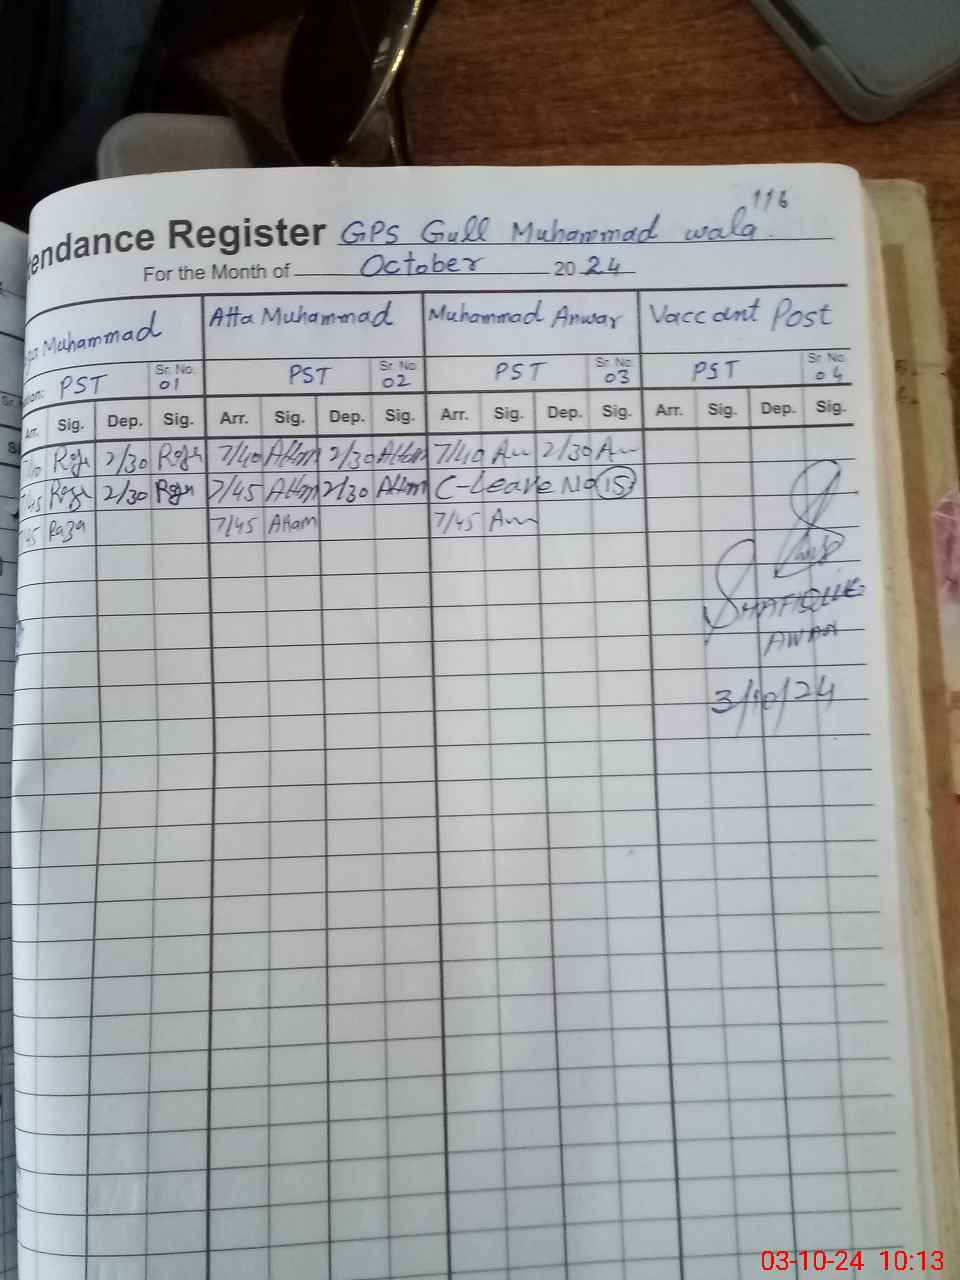 116
endance Register GPS Gull Muhammad wala.
For the Month of October 2024
Muhammad Atta Muhammad Muhammad Anwar Vaccant Post
PST Sr. No. 01 PST Sr. No. 02 PST Sr. No. 03 PST Sr. No. 04
Arr. Sig. Dep. Sig. Arr. Sig. Dep. Sig. Arr. Sig. Dep. Sig. Arr. Sig. Dep. Sig.
2/30 7/40 2/30 7/40 2/30
2/30 7/45 2/30 C-Leave No 15
45 Raza 7/45 7/45
SHAFIQUE
AWAN
3/10/24
03-10-24 10:13